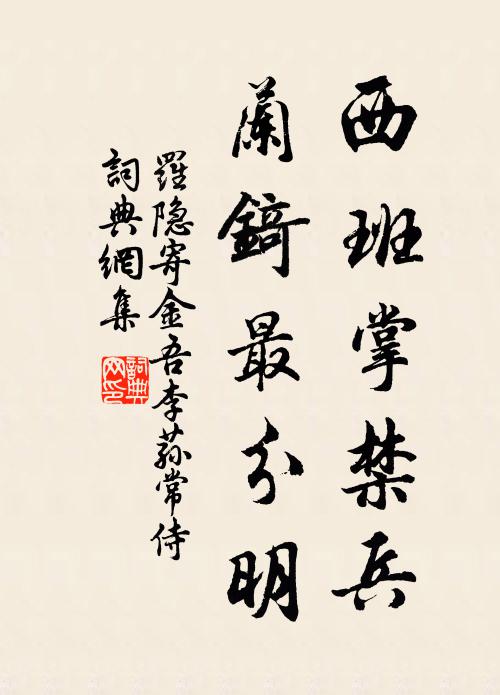 西班掌禁兵
蘭錡最分明
羅隐寄金吾李荪常侍
詞典網集
詞典
网印